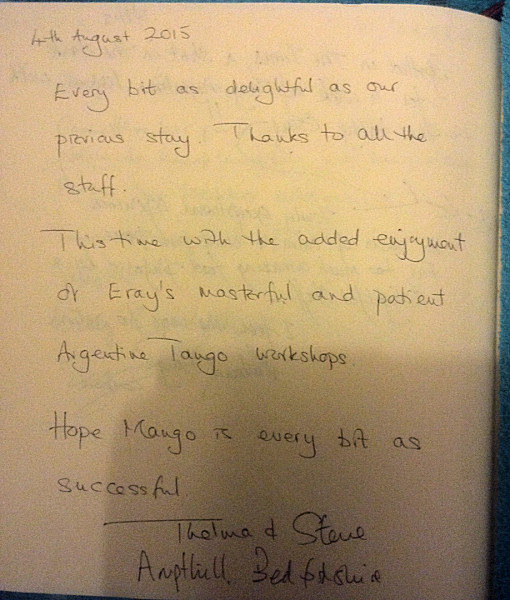 4th August 2015
Every bit as delightful as our
previous stay. Thanks to all the
staff.
This time with the added enjoyment
of Eray's masterful and patient
Argentine Tango workshops.
Hope Mango is every bit as
successful.
Thelma & Steve
Ampthill, Bedfordshire